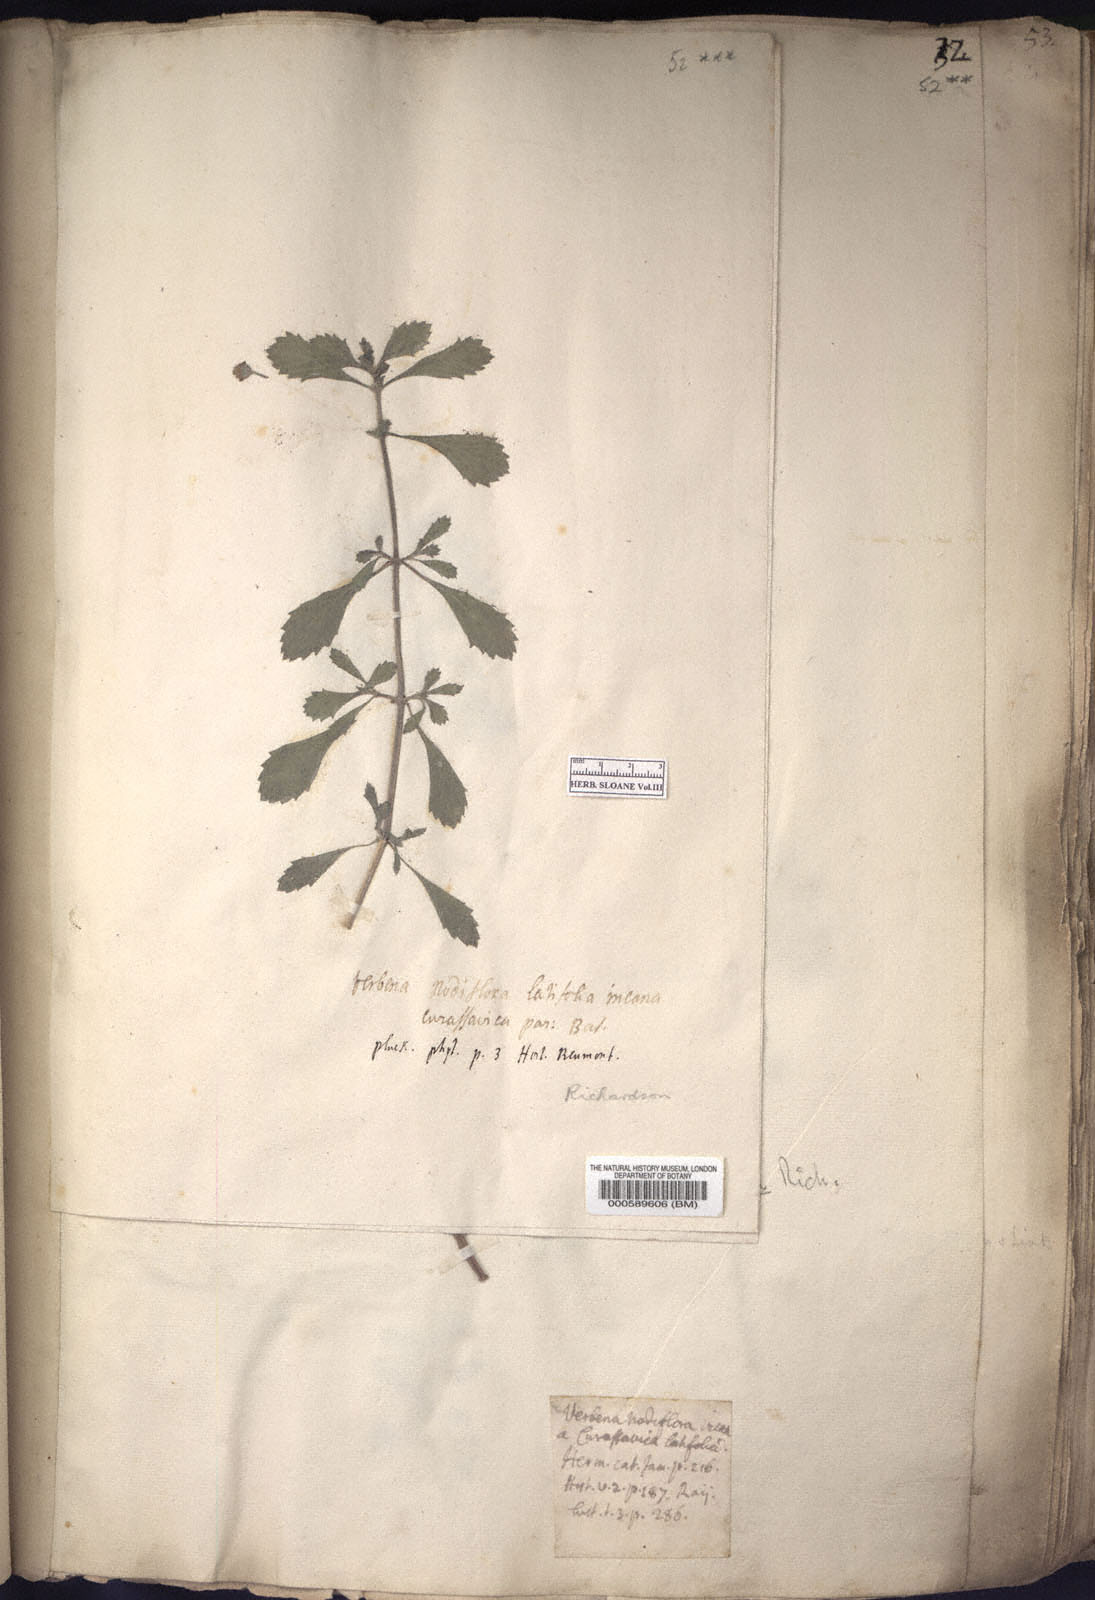 52 ***
32
52**
53.
mm 1 2 3
HERB. SLOANE Vol.III
Verbena Nodiflora latifolia incana
curassavica par: Bat.
pluk. phyt. p. 3 Hort. Beumont.
Richardson
THE NATURAL HISTORY MUSEUM, LONDON
DEPARTMENT OF BOTANY
000589606 (BM)
Rich.
Verbena Nodiflora incan
a Curassavica latifolia.
Herm. cat. Jam. p. 216.
Hist. v. 2. p. 187. Raij.
hist. t. 3. p. 286.